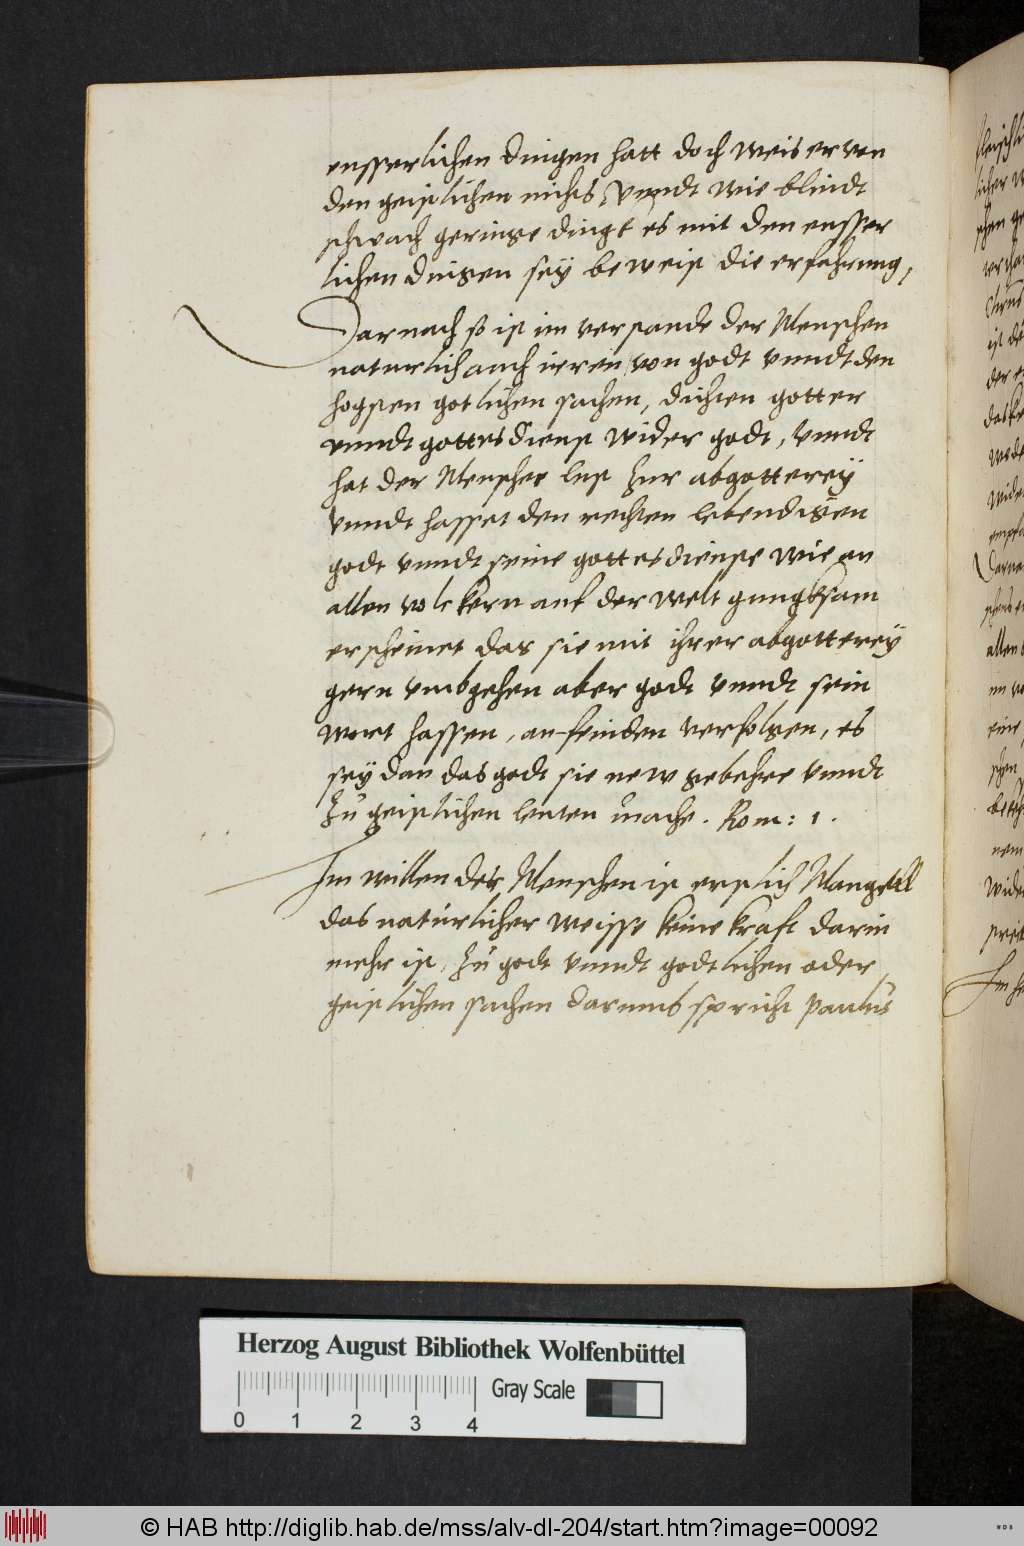 eusserlichen dingen hatt doch weis er von
den geistlichen nichts, vnndt wie blindt
schwach geringe dingk es mit den eusser
lichen dingen sey beweist die erfahrung,
Darnach so ist im verstande der Menschen
naturlich auch irren von godt vnndt den
hogsten gotlichen sachen, dichten gotter
vnndt gottesdienst wider godt, vnndt
hat der Mensche lust zur abgotterey
vnndt hasset den rechten lebendigen
godt vnndt seine gottesdienste wie an
allen volckern auf der welt gnugksam
erscheinet das sie mit ihrer abgotterey
gern vmbgehen aber godt vnndt sein
wort hassen, anfeinden verfolgen, es
sey dan das godt sie new gebehre vnndt
zu geistlichen leuten mache. Rom: 1.
Im willen des Menschen ist erstlich Mangell
das naturlicher weisse keine kraft darin
mehr ist, zu godt vnndt godtlichen oder
geistlichen sachen darumb spricht Paulus
Herzog August Bibliothek Wolfenbüttel
Gray Scale
0 1 2 3 4
© HAB http://diglib.hab.de/mss/alv-dl-204/start.htm?image=00092